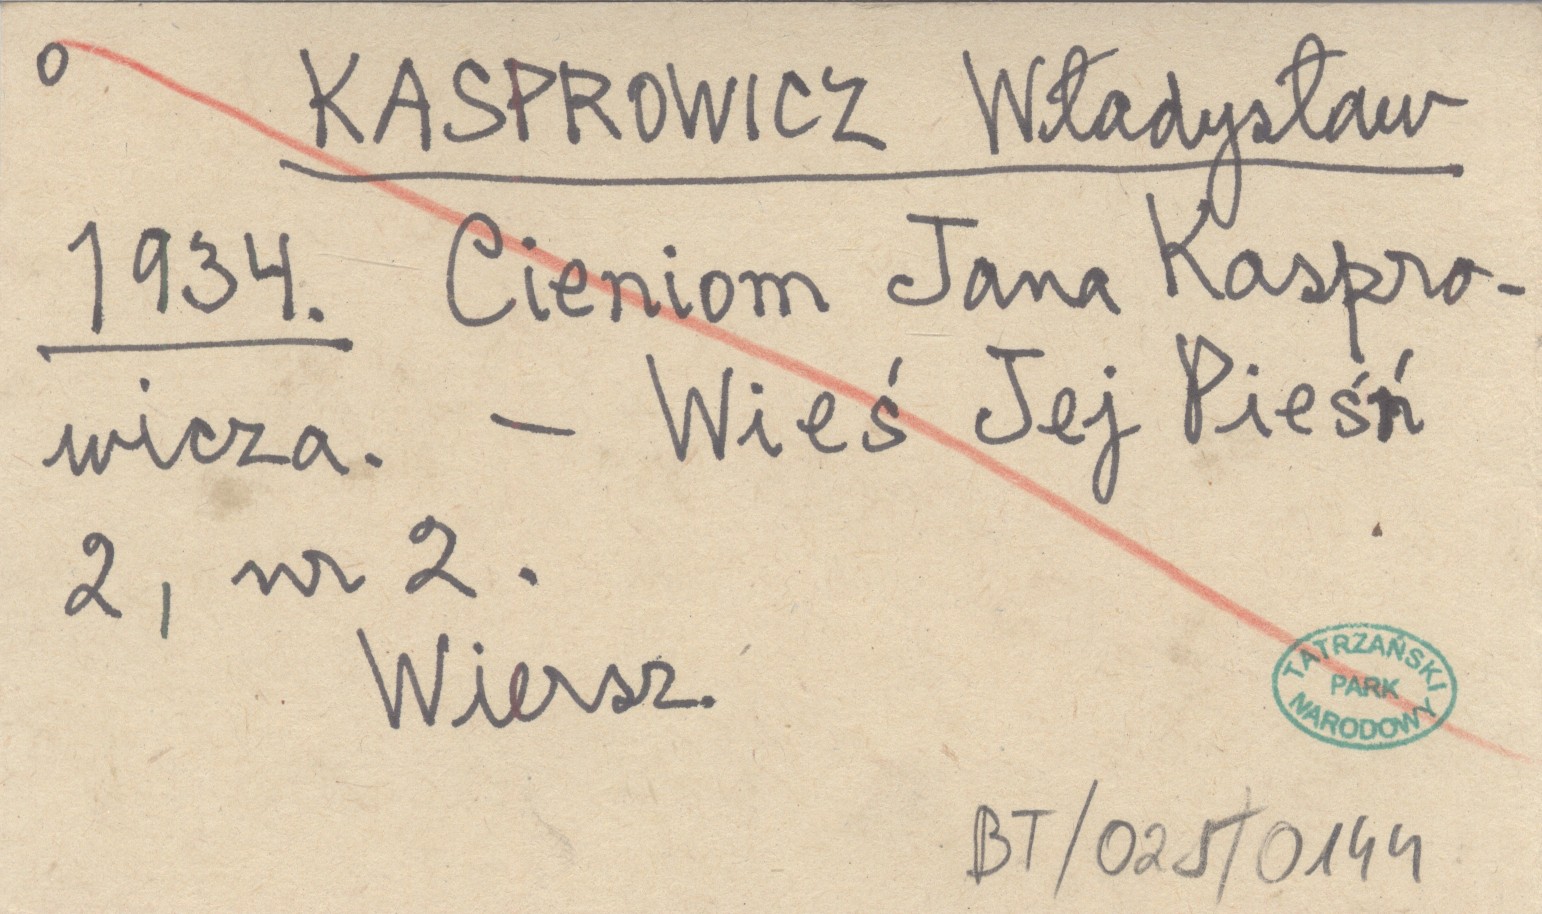 o KASPROWICZ Władysław
1934. Cieniom Jana Kaspro-
wicza. – Wieś Jej Pieśń
2, nr 2.
Wiersz.
TATRZAŃSKI
PARK
NARODOWY
BT/025/0144